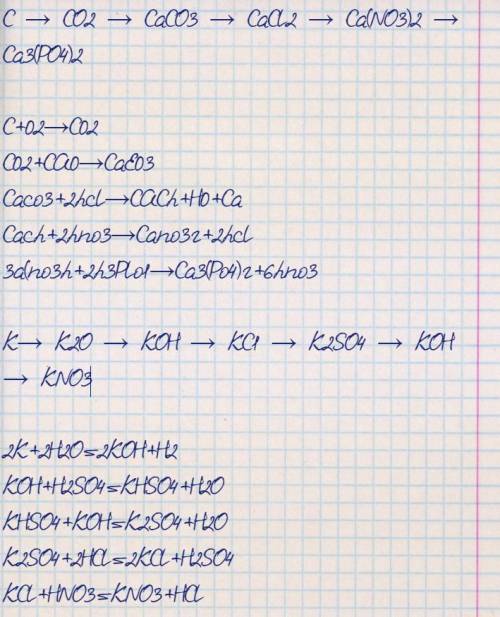 C → CO2 → CaCO3 → CaCl2 → Ca(NO3)2 →
Ca3(PO4)2
C+O2→CO2
CO2+CaO→CaCO3
Caco3+2hcl→CaCh+HO+Ca
Cach+2hno3→Cano3r+2hcl
3a(no3h+2h3Plo1→Ca3(Po4)r+6hno3
K→ K2O → KOH → KCl → K2SO4 → KOH
→ KNO3
2K+2H2O=2KOH+H2
KOH+H2SO4=KHSO4+H2O
KHSO4+KOH=K2SO4+H2O
K2SO4+2HCl=2KCl+H2SO4
KCl+HNO3=KNO3+HCl